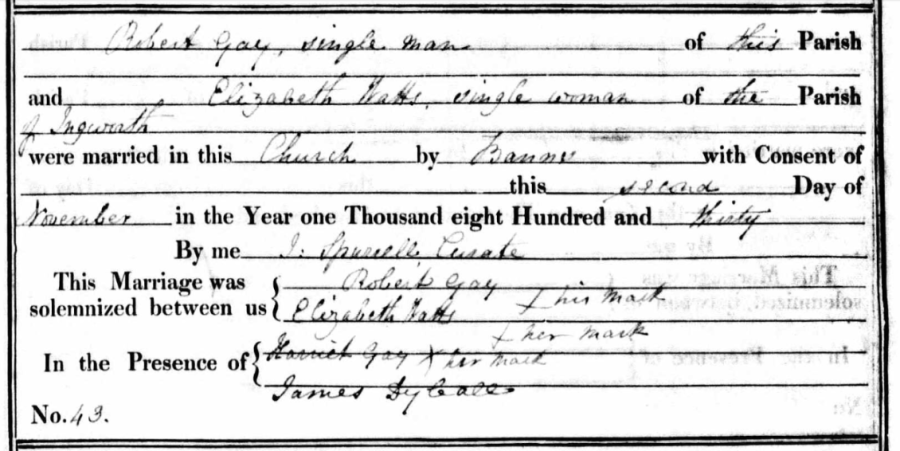 Robert Gay, single man of this Parish
and Elizabeth Watts, single woman of the Parish
of Ingworth
were married in this Church by Banns with Consent of
this second Day of
November in the Year one Thousand eight Hundred and thirty
By me J: Spurrell Curate
This Marriage was
solemnized between us
Robert Gay + his mark
Elizabeth Watts
+ her mark
In the Presence of
Harriet Gay X her mark
James Dyball
No. 43.